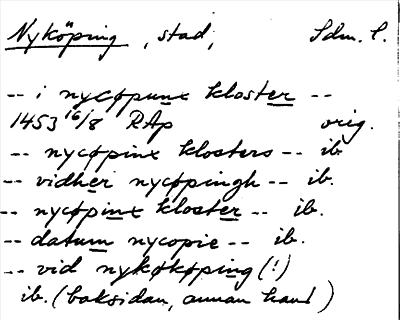 Nyköping, stad, Sdm. l.
-- i nycøpunx kloster --
1453 16/8 RAp orig.
-- nycøpinx klosters -- ib
-- vidher nycøpingh -- ib.
-- nycøpinx kloster -- ib.
-- datum nycopie -- ib.
-- vid nykøkøping (!)
ib. (baksidan, annan hand)